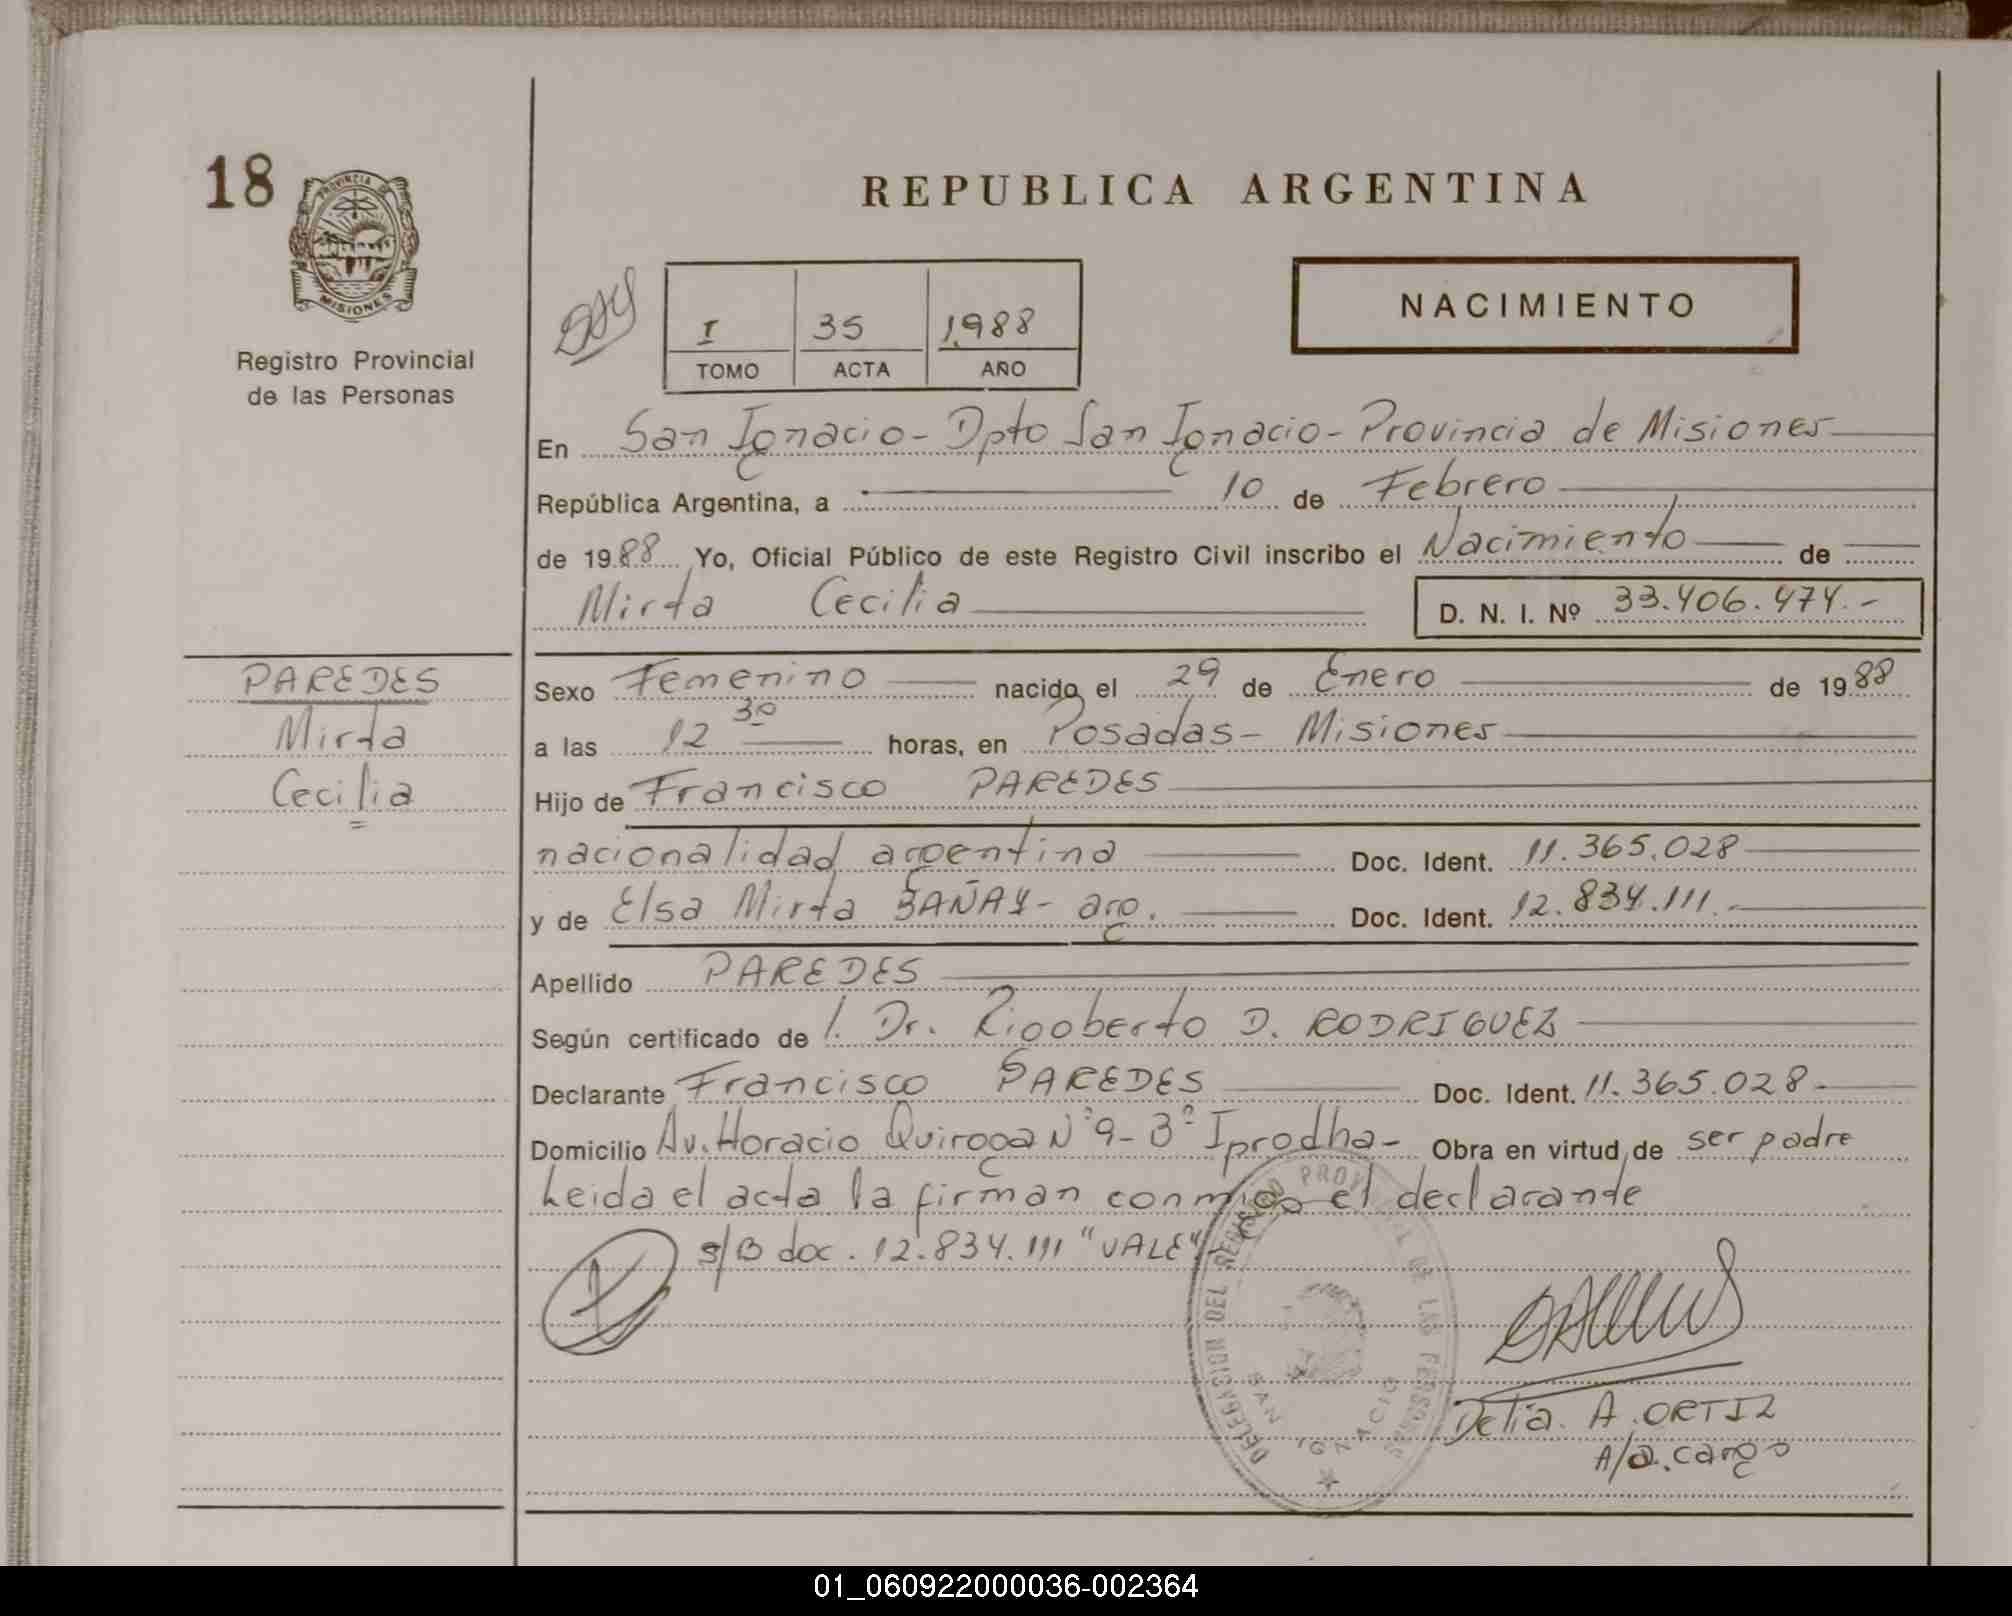 18
PROVINCIA DE
MISIONES
Registro Provincial
de las Personas
REPUBLICA ARGENTINA
I 35 1.988
TOMO ACTA AÑO
NACIMIENTO
En San Ignacio - Dpto San Ignacio - Provincia de Misiones
República Argentina, a 10 de Febrero
de 1988 Yo, Oficial Público de este Registro Civil inscribo el Nacimiento de
Mirta Cecilia D. N. I. Nº 33.406.474.-
PAREDES
Mirta
Cecilia
Sexo Femenino nacido el 29 de Enero de 1988
a las 12 30 horas, en Posadas - Misiones
Hijo de Francisco PAREDES
nacionalidad argentina Doc. Ident. 11.365.028
y de Elsa Mirta BAÑAY - arg. Doc. Ident. 12.834.111.-
Apellido PAREDES
Según certificado de l. Dr. Rigoberto D. RODRIGUEZ
Declarante Francisco PAREDES Doc. Ident. 11.365.028-
Domicilio Av. Horacio Quiroga Nº 9 - Bº Iprodha - Obra en virtud de ser padre
Leida el acta la firman conmigo el declarante
s/B doc. 12.834.111 "VALE"
DELEGACION DEL REGISTRO PROVINCIAL DE LAS PERSONAS
SAN IGNACIO
Delia A. ORTIZ
A/a. cargo
01_060922000036-002364